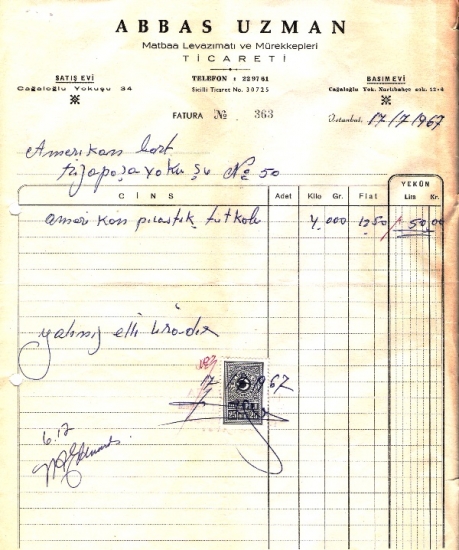 ABBAS UZMAN
Matbaa Levazımatı ve Mürekkepleri
TİCARETİ
SATIŞ EVİ
Cağaloğlu Yokuşu 34
TELEFON : 22 97 61
Sicilli Ticaret No. 30725
BASIM EVİ
Cağaloğlu Yok. Narlıbahçe sok. 12-4
FATURA № 363
İstanbul, 17/7/1967
Amerikan bort
No 50
CİNS Adet Kilo Gr. Fiat YEKÛN
Lira Kr.
amerikan pilastik tutkalı 4,000 1250 50,00
yalnız elli liradır
17 1967
6.12